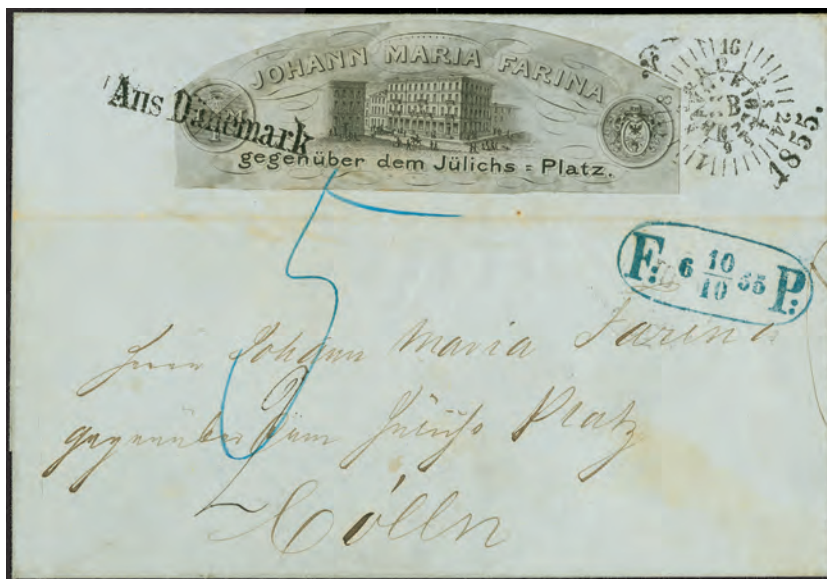 JOHANN MARIA FARINA
gegenüber dem Jülichs = Platz.
Aus Dänemark
1855.
F: 6 10/10 55 P:
5
Herrn Johann Maria Farina
gegenüber dem Jülichs Platz
Cölln